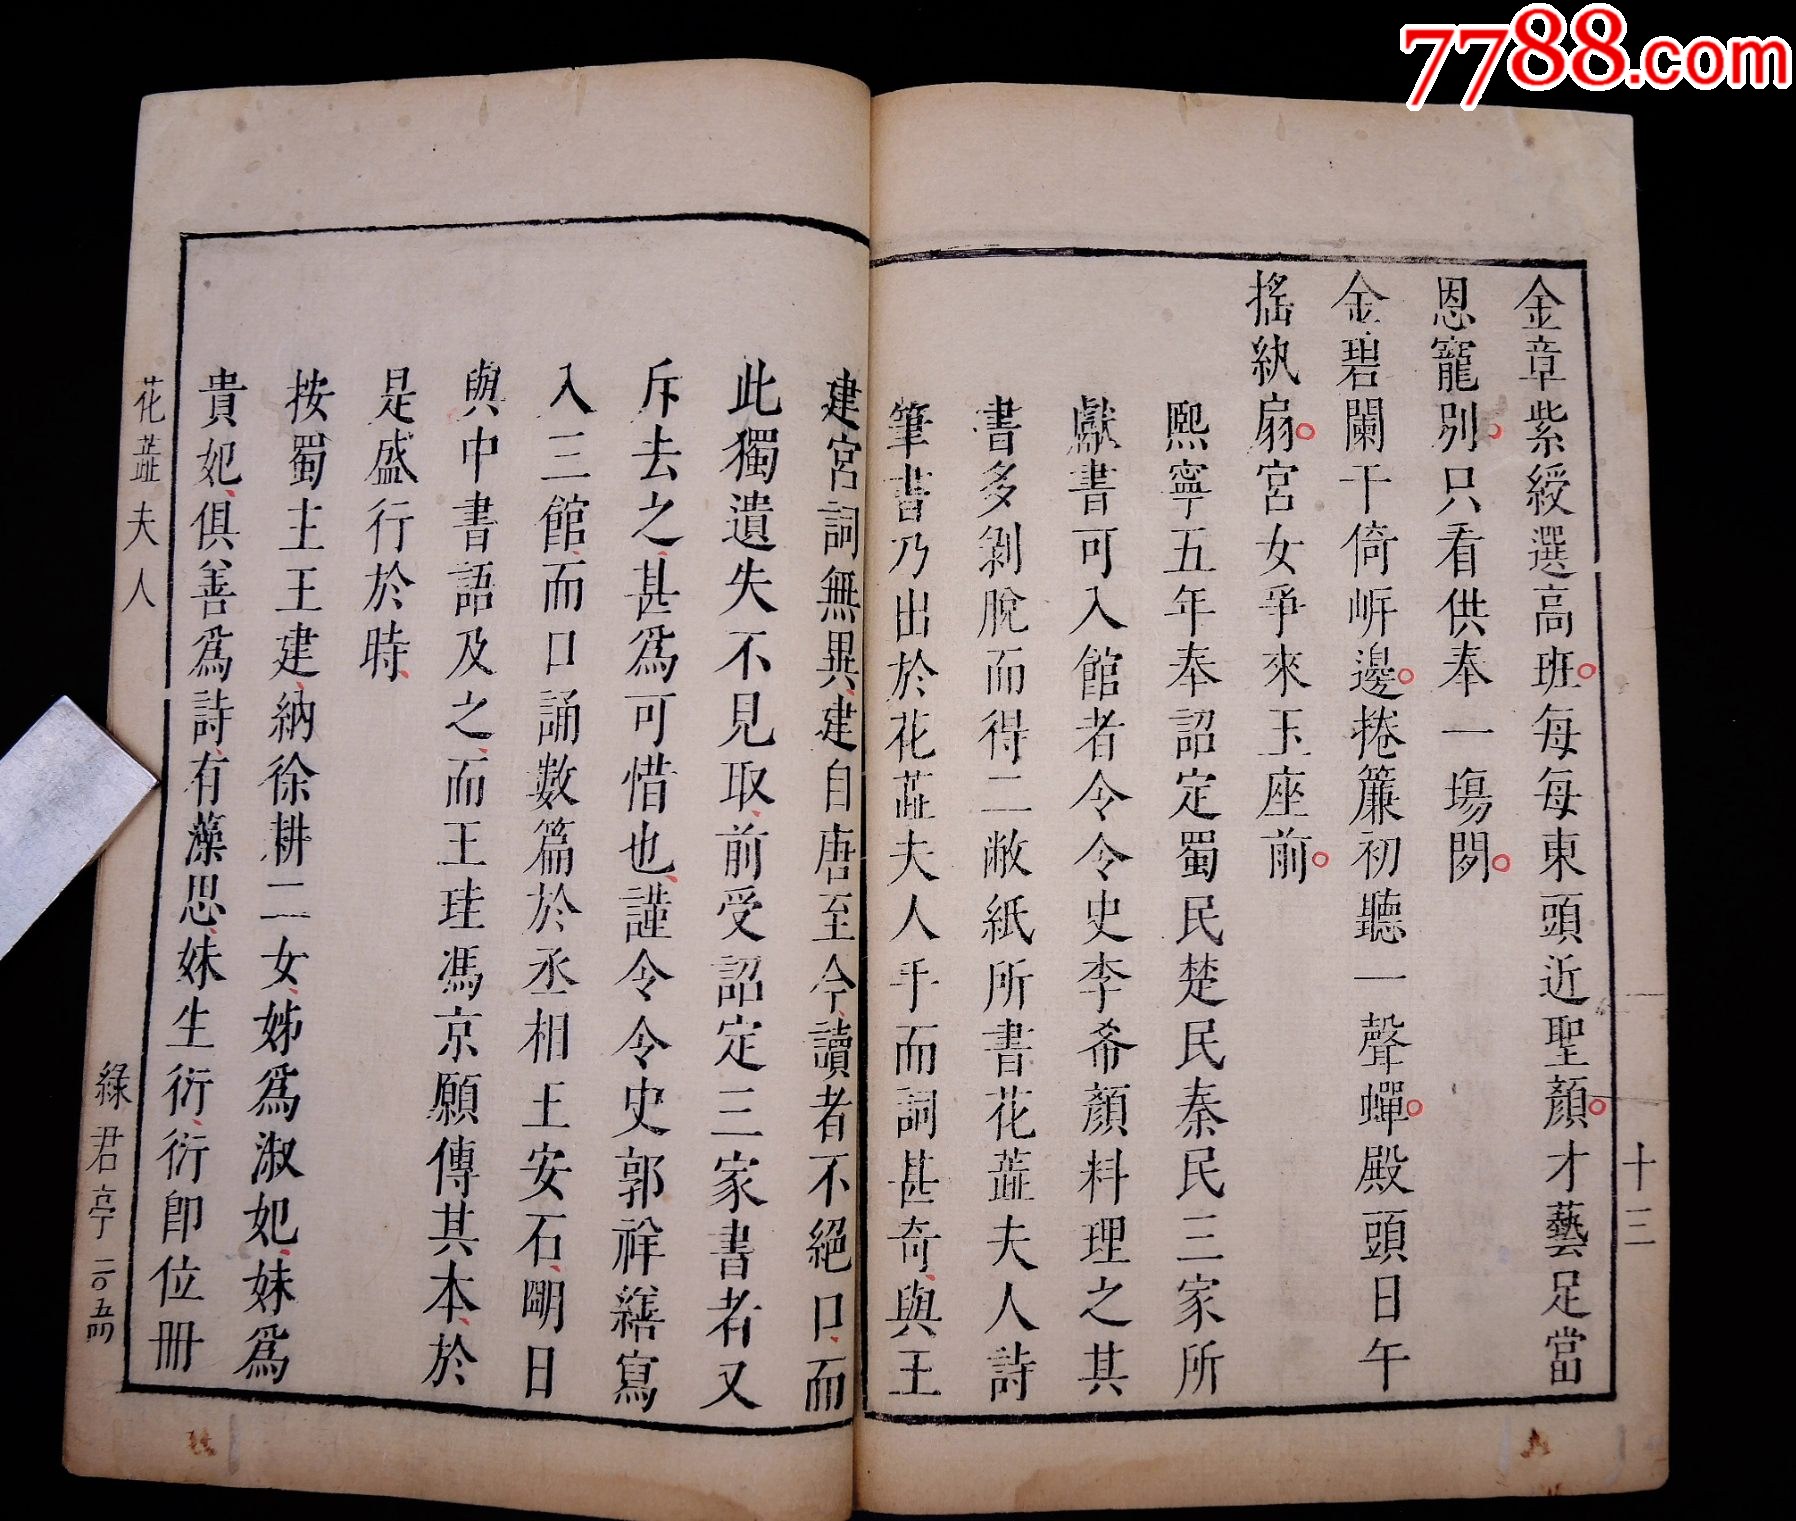 7788.com
金章紫綬選高班每每東頭近聖顏才藝足當
恩寵別只看供奉一塲閖
金碧闌干倚岍邊捲簾初聽一聲蟬殿頭日午
搖紈扇宮女爭來玉座前
熙寧五年奉詔定蜀民楚民秦民三家所
獻書可入館者令令史李希顏料理之其
書多剝脫而得二敝紙所書花蘂夫人詩
筆書乃出於花蘂夫人手而詞甚奇與王
十三
建宮詞無異建自唐至今讀者不絕口而
此獨遺失不見取前受詔定三家書者又
斥去之甚爲可惜也謹令令史郭祥繕寫
入三館而口誦數篇於丞相王安石明日
與中書語及之而王珪馮京願傳其本於
是盛行於時
按蜀主王建納徐耕二女姊爲淑妃妹爲
貴妃俱善爲詩有藻思妹生衍衍卽位冊
花蘂夫人
綠君亭